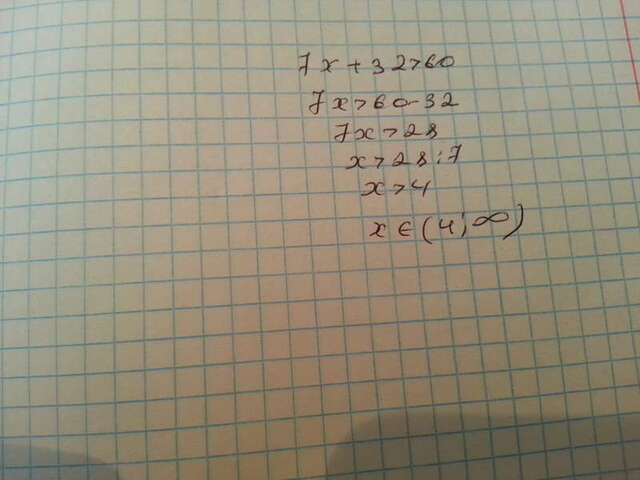 7x+32>60
7x>60-32
7x>28
x>28:7
x>4
x∈(4;∞)